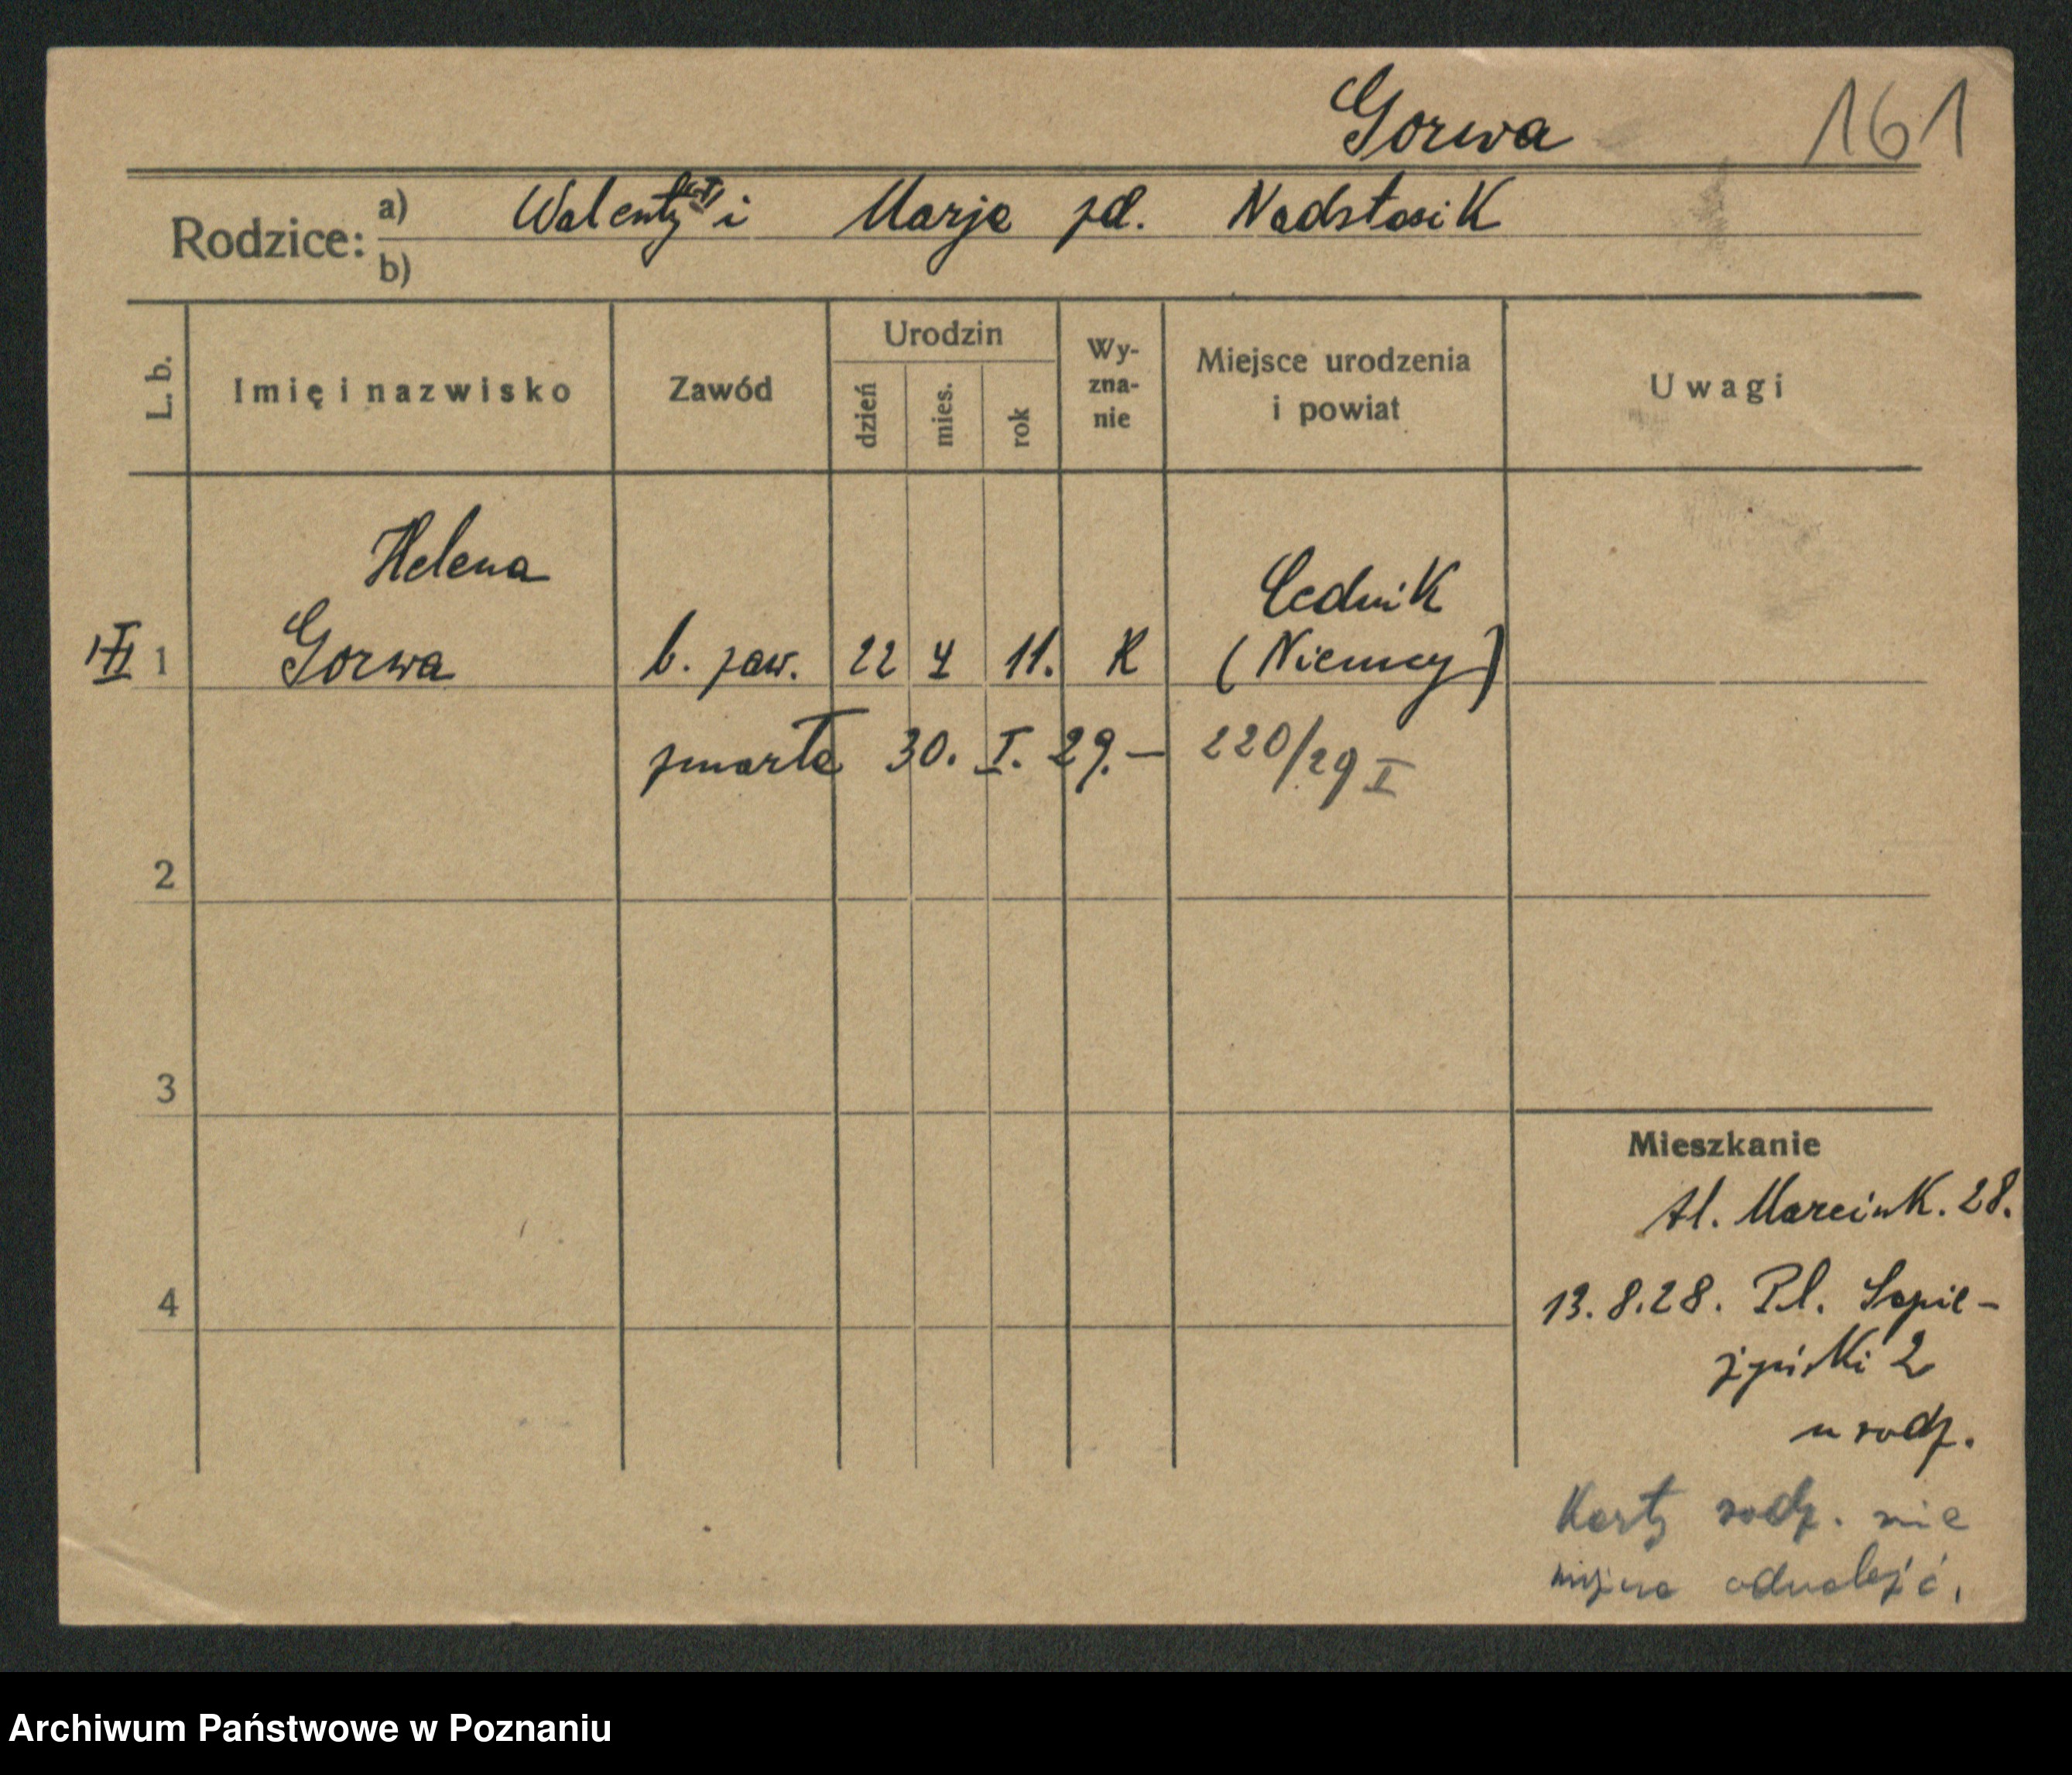 Gorwa 161
Rodzice: a) Walenty (†) i Marja zd. Nadstasik
b)
L. b. Imię i nazwisko Zawód Urodzin dzień mies. rok Wy-zna-nie Miejsce urodzenia i powiat Uwagi
Helena
Lednik
III 1 Gorwa b. zaw. 22 4 11. K (Niemcy)
zmarła 30. I. 29.— 220/29 I
2
3
Mieszkanie
Al. Marcink. 28.
4 13.8.28. Pl. Sapie-
żyński 2
u rodz.
Karty rodz. nie
można odnaleźć.
Archiwum Państwowe w Poznaniu